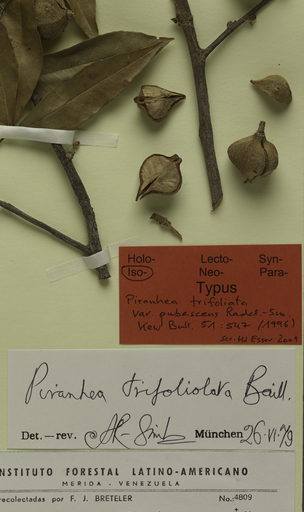 Holo- Lecto- Syn-
Iso- Neo- Para-
Typus
Piranhea trifoliata
var. pubescens Radcl.-Sm
Kew Bull. 51: 547 (1996)
scrit Esser 2009
Piranhea trifoliolata Baill.
Det.—rev. München 26·VI·79
INSTITUTO FORESTAL LATINO-AMERICANO
MERIDA - VENEZUELA
recolectadas por F. J. BRETELER No.: 4809